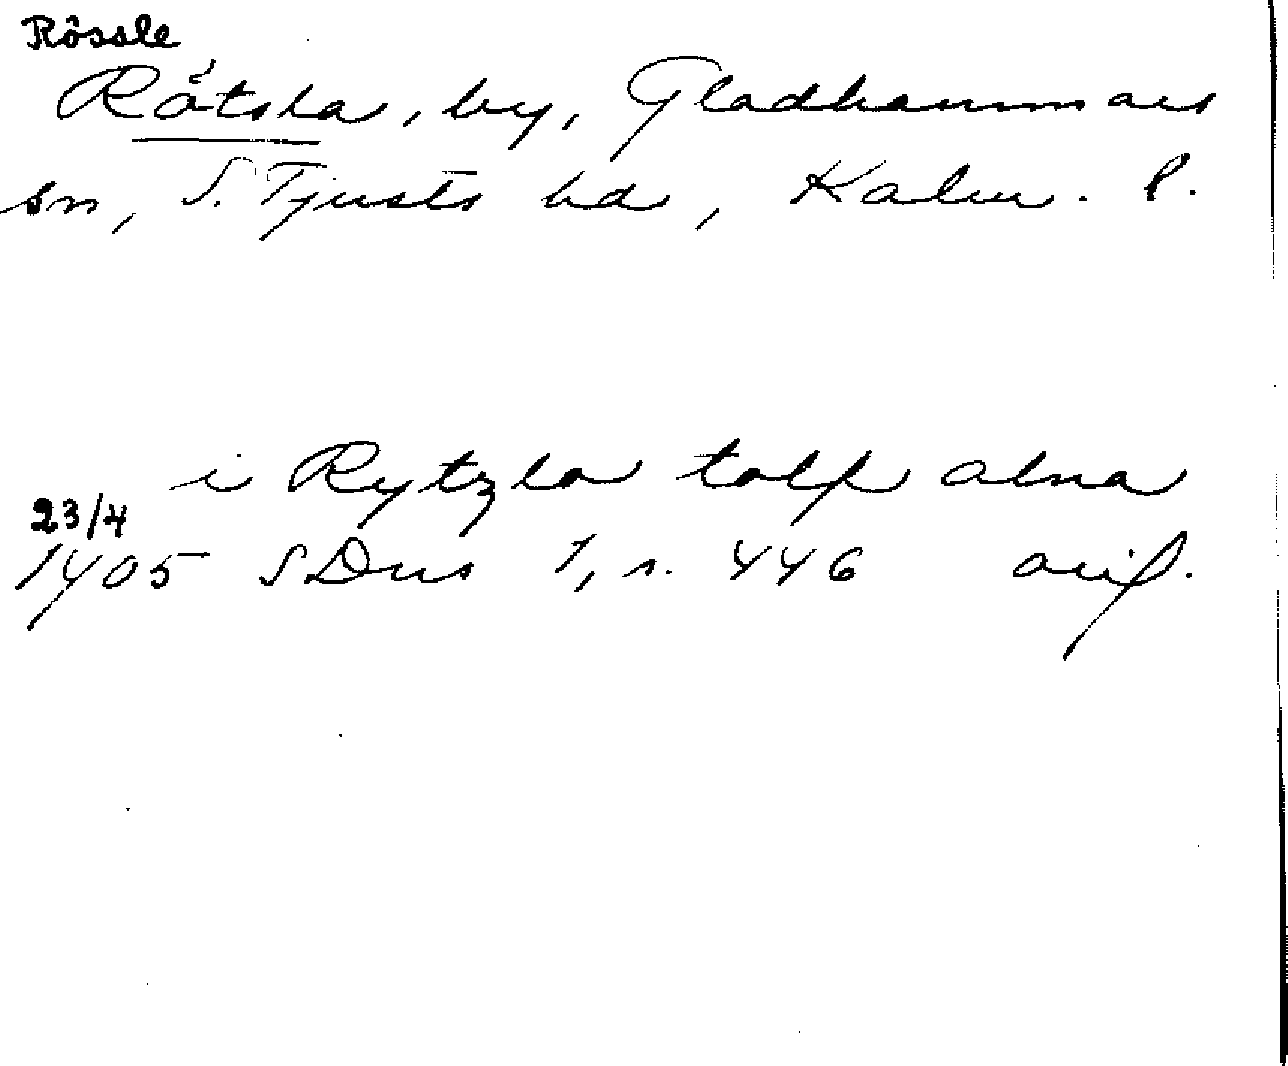 Rössle
Rötsla, by, Gladhammars
sn, S. Tjusts hd, Kalm. l.
i Rytzla tolf alna
23/4
1405 SDns 1, s. 446 avf.